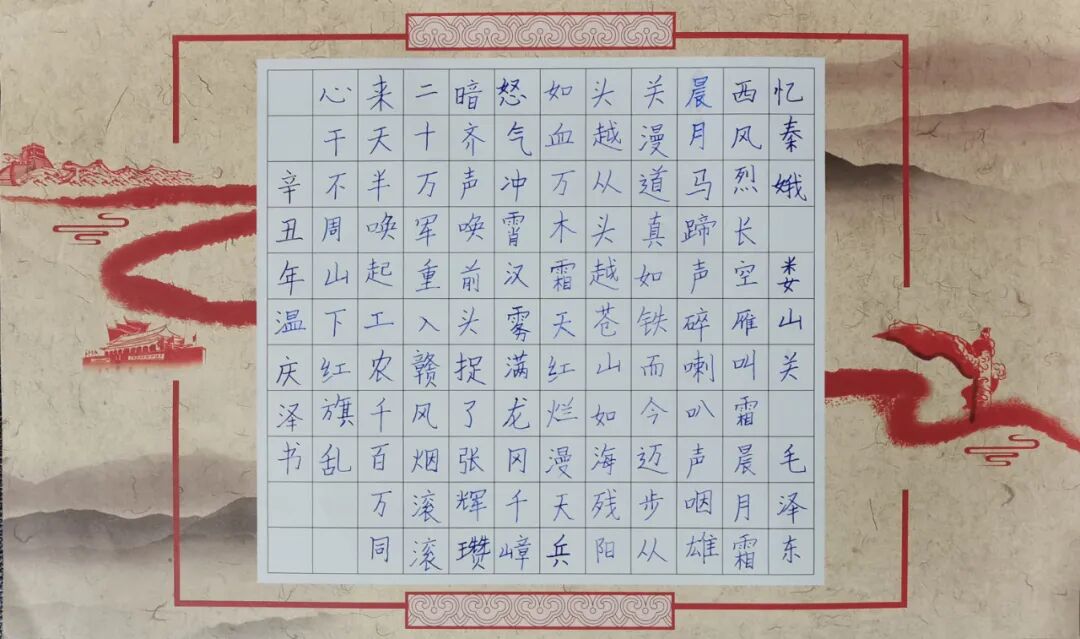 忆秦娥 娄山关 毛泽东
西风烈长空雁叫霜晨月霜
晨月马蹄声碎喇叭声咽雄
关漫道真如铁而今迈步从
头越从头越苍山如海残阳
如血万木霜天红烂漫天兵
怒气冲霄汉雾满龙冈千嶂
暗齐声唤前头捉了张辉瓒
二十万军重入赣风烟滚滚
来天半唤起工农千百万同
心干不周山下红旗乱
辛丑年温庆泽书